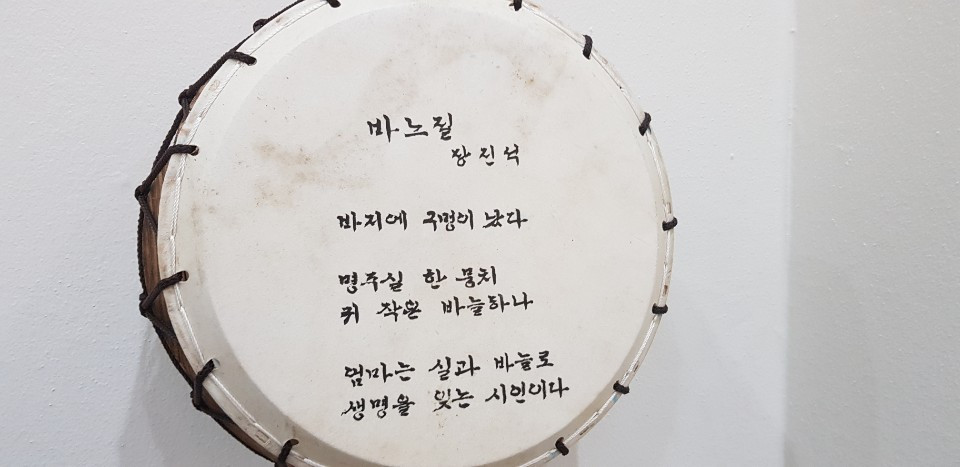 바느질
장진석
바지에 구멍이 났다
명주실 한 뭉치
귀 작은 바늘하나
엄마는 실과 바늘로
생명을 잇는 시인이다